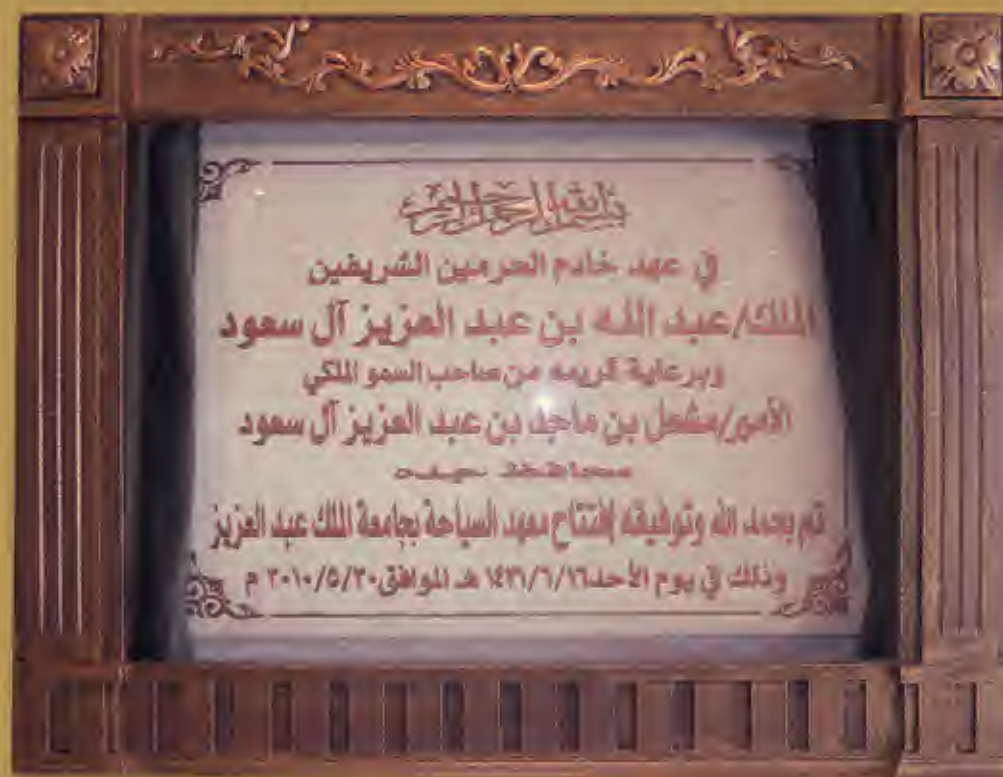 بسم الله الرحمن الرحيم
في عهد خادم الحرمين الشريفين
الملك/عبد الله بن عبد العزيز آل سعود
وبرعاية كريمه من صاحب السمو الملكي
الأمير/مشعل بن ماجد بن عبد العزيز آل سعود
محافظ جدة
تم بحمد الله وتوفيقه إفتتاح معهد السياحة بجامعة الملك عبد العزيز
وذلك في يوم الأحد ١٤٣١/٦/١٦ هـ الموافق ٢٠١٠/٥/٣٠ م